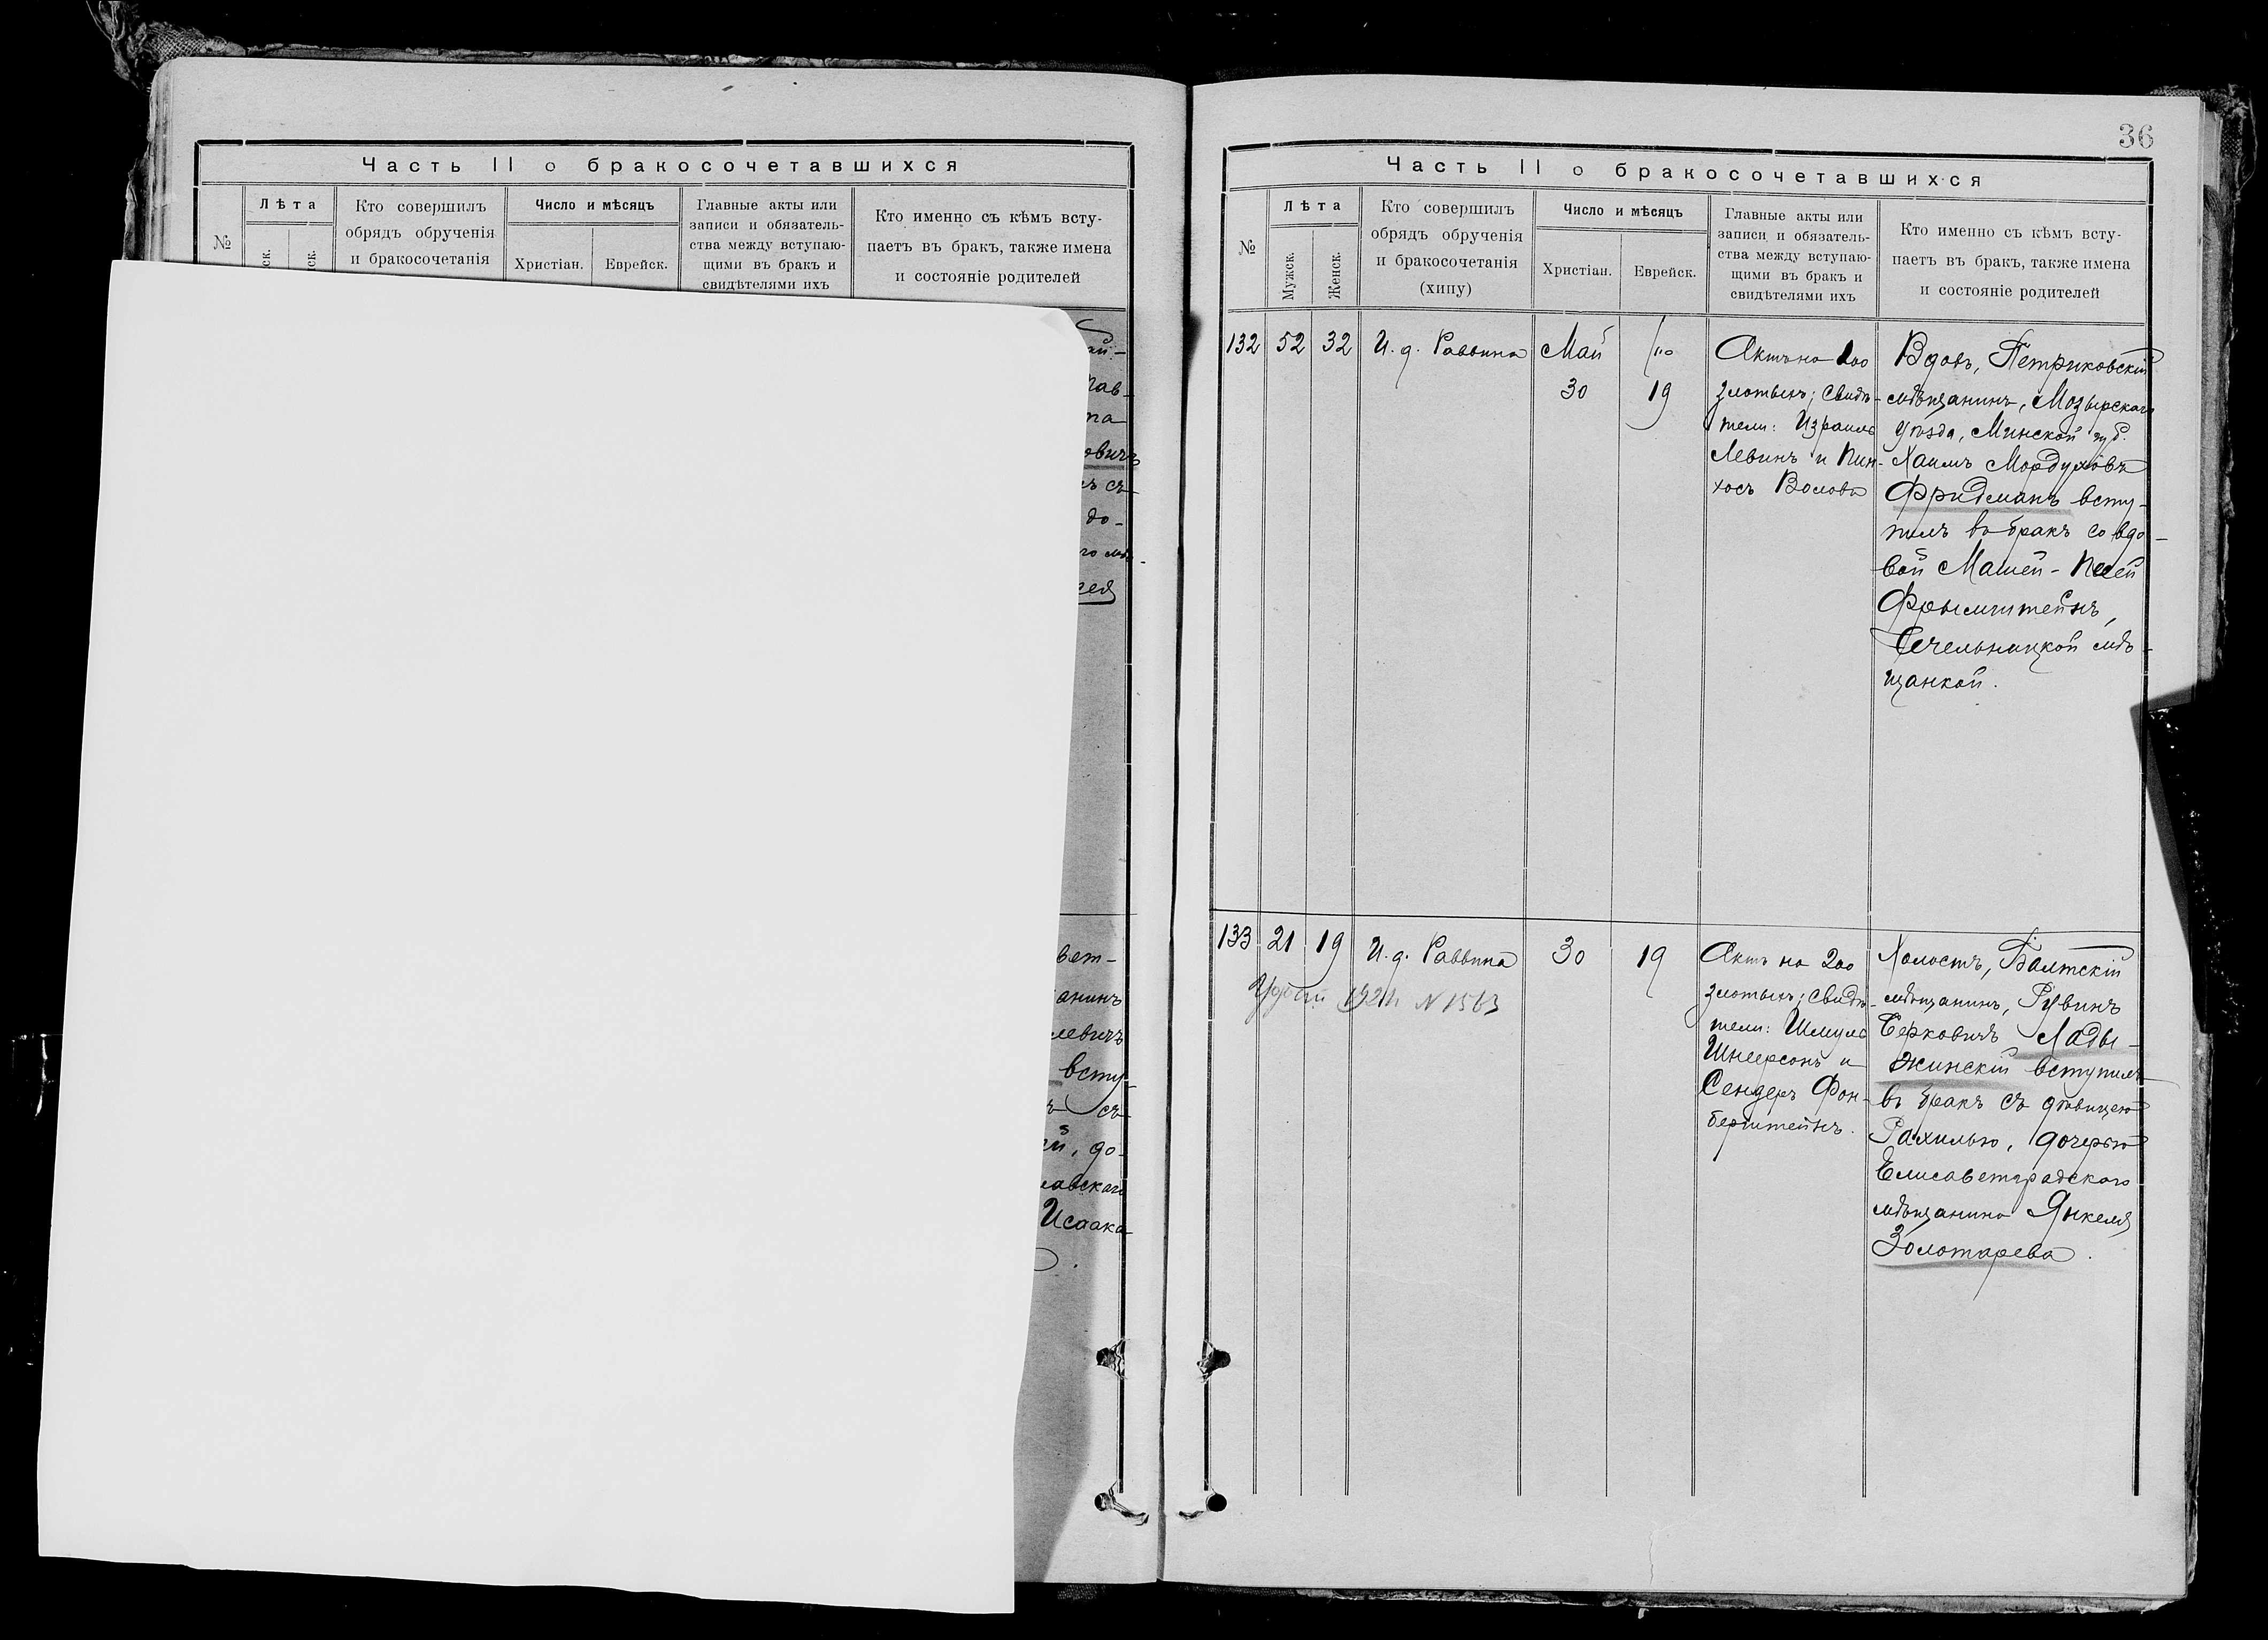 Часть II о бракосочетавшихся
№
Лѣта
ск.
ск.
Кто совершилъ
обрядъ обрученія
и бракосочетанія
Число и мѣсяцъ
Христіан.
Еврейск.
Главные акты или
записи и обязатель-
ства между вступаю-
щими въ бракъ и
свидѣтелями ихъ
Кто именно съ кѣмъ всту-
паетъ въ бракъ, также имена
и состояніе родителей
пав-
та
овичъ
съ
до-
вет-
анинъ
левичъ
всту-
съ
до-
авскаго
Исаака
36
Часть II о бракосочетавшихся
№
Лѣта
Мужск.
Женск.
Кто совершилъ
обрядъ обрученія
и бракосочетанія
(хипу)
Число и мѣсяцъ
Христіан.
Еврейск.
Главные акты или
записи и обязатель-
ства между вступаю-
щими въ бракъ и
свидѣтелями ихъ
Кто именно съ кѣмъ всту-
паетъ въ бракъ, также имена
и состояніе родителей
132
52
32
И. д. Раввина
Май
30
19
Актъ на 200
злотыхъ; свидѣ-
тели: Израиль
Левинъ и Пин-
хосъ Волова
Вдовъ, Петриковскій
мѣщанинъ, Мозырскаго
уѣзда, Минской губ.
Хаимъ Мордуховъ
Фридманъ всту-
пилъ въ бракъ со вдо-
вой Машей-Песей
Чечельницкой мѣ-
щанкой.
133
21
19
И. д. Раввина
30
19
N 1563
Актъ на 200
злотыхъ; свидѣ-
тели: Шмуль
Шнеерсонъ и
Сендеръ Фон-
берштейнъ.
Холостъ, Балтскій
мѣщанинъ, Рувинъ
Берковичъ Лады-
жинскій вступилъ
въ бракъ съ дѣвицею
Рахилью, дочерью
Елисаветградского
мѣщанина Янкеля
Золотарева.